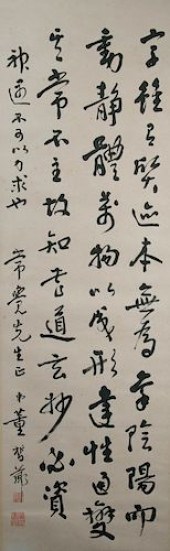 字雖有質迹本無為稟陰陽而
動靜體萬物以成形達性通變
其常不主故知書道玄妙必資
神遇不可以力求也
常覺先生正 弟董